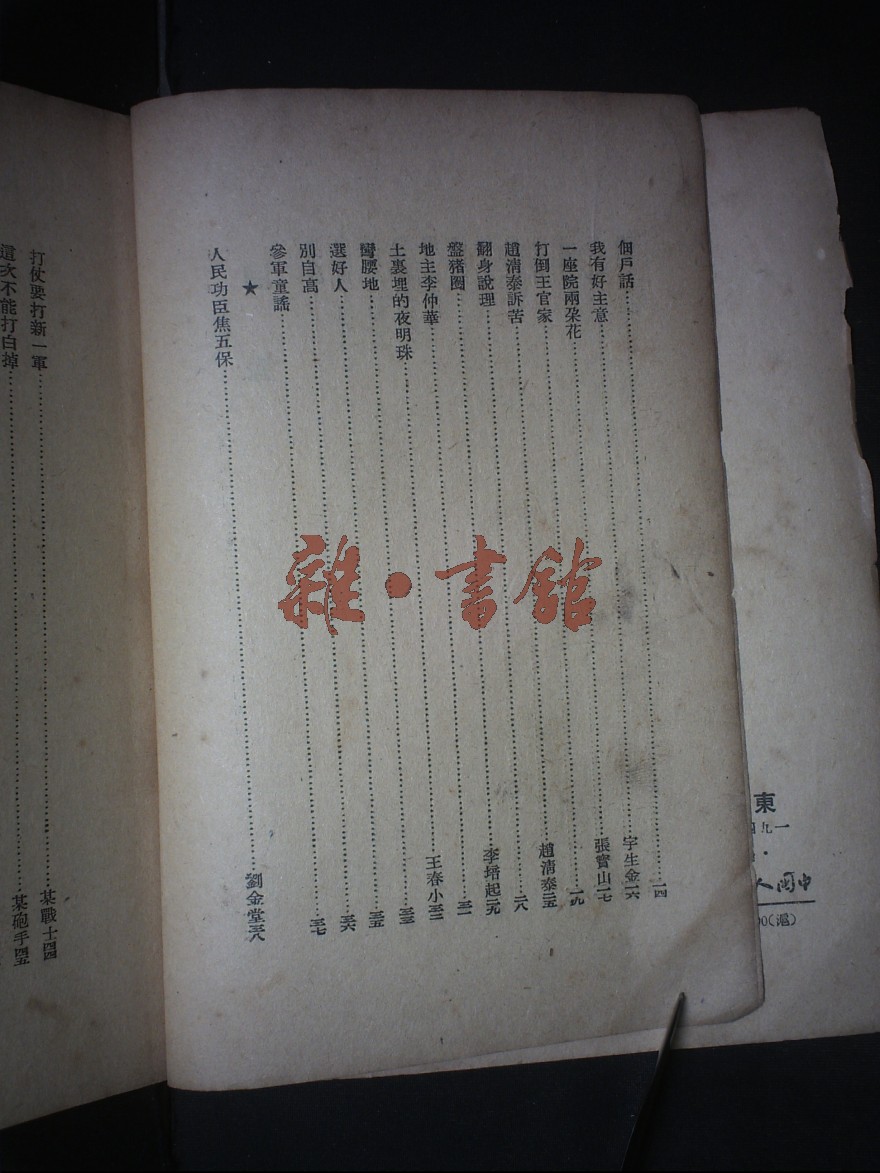 東
一九四
00(滬)
佃戶話……一四
我有好主意……宇生金 一六
一座院兩朵花……張實山 一七
打倒王官家……一九
趙清泰訴苦……趙清泰 二五
翻身說理……二八
盤猪圈……李培起 二九
地主李仲華……三一
土裏埋的夜明珠……王春小 三二
彎腰地……三三
選好人……三五
別自高……三六
參軍童謠……三七
★
人民功臣焦五保……劉金堂 三八
打仗要打新一軍……某戰士 四四
這次不能打白掉……某砲手 四五
雜·書館